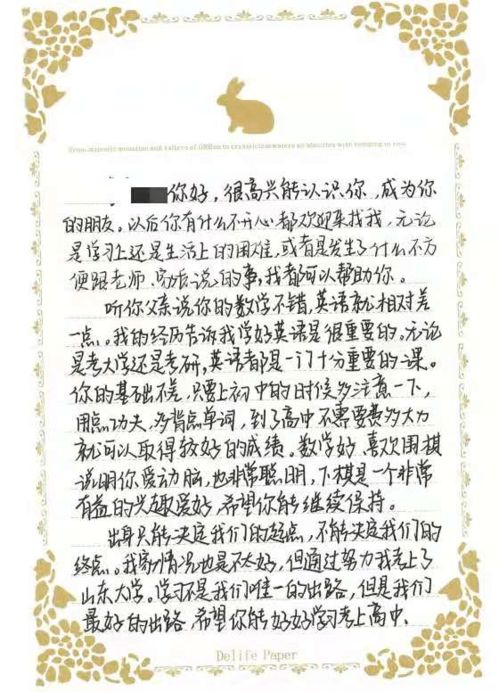 你好，很高兴能认识你，成为你
的朋友。以后你有什么不开心都欢迎来找我，无论
是学习上还是生活上的困难，或者是发生了什么不方
便跟老师、家长说的事，我都可以帮助你。
听你父亲说你的数学不错，英语就相对差
一点。我的经历告诉我学好英语是很重要的。无论
是考大学还是考研，英语都是一门十分重要的一课。
你的基础不差，只要上初中的时候多注意一下，
用点功夫，多背点单词，到了高中不需要费多大力
就可以取得较好的成绩。数学好，喜欢围棋
说明你爱动脑，也非常聪明，下棋是一个非常
有益的兴趣爱好，希望你能继续保持。
出身只能决定我们的起点，不能决定我们的
终点。我家情况也是不太好，但通过努力我考上了
山东大学。学习不是我们唯一的出路，但是我们
最好的出路，希望你能好好学习考上高中。
Delife Paper